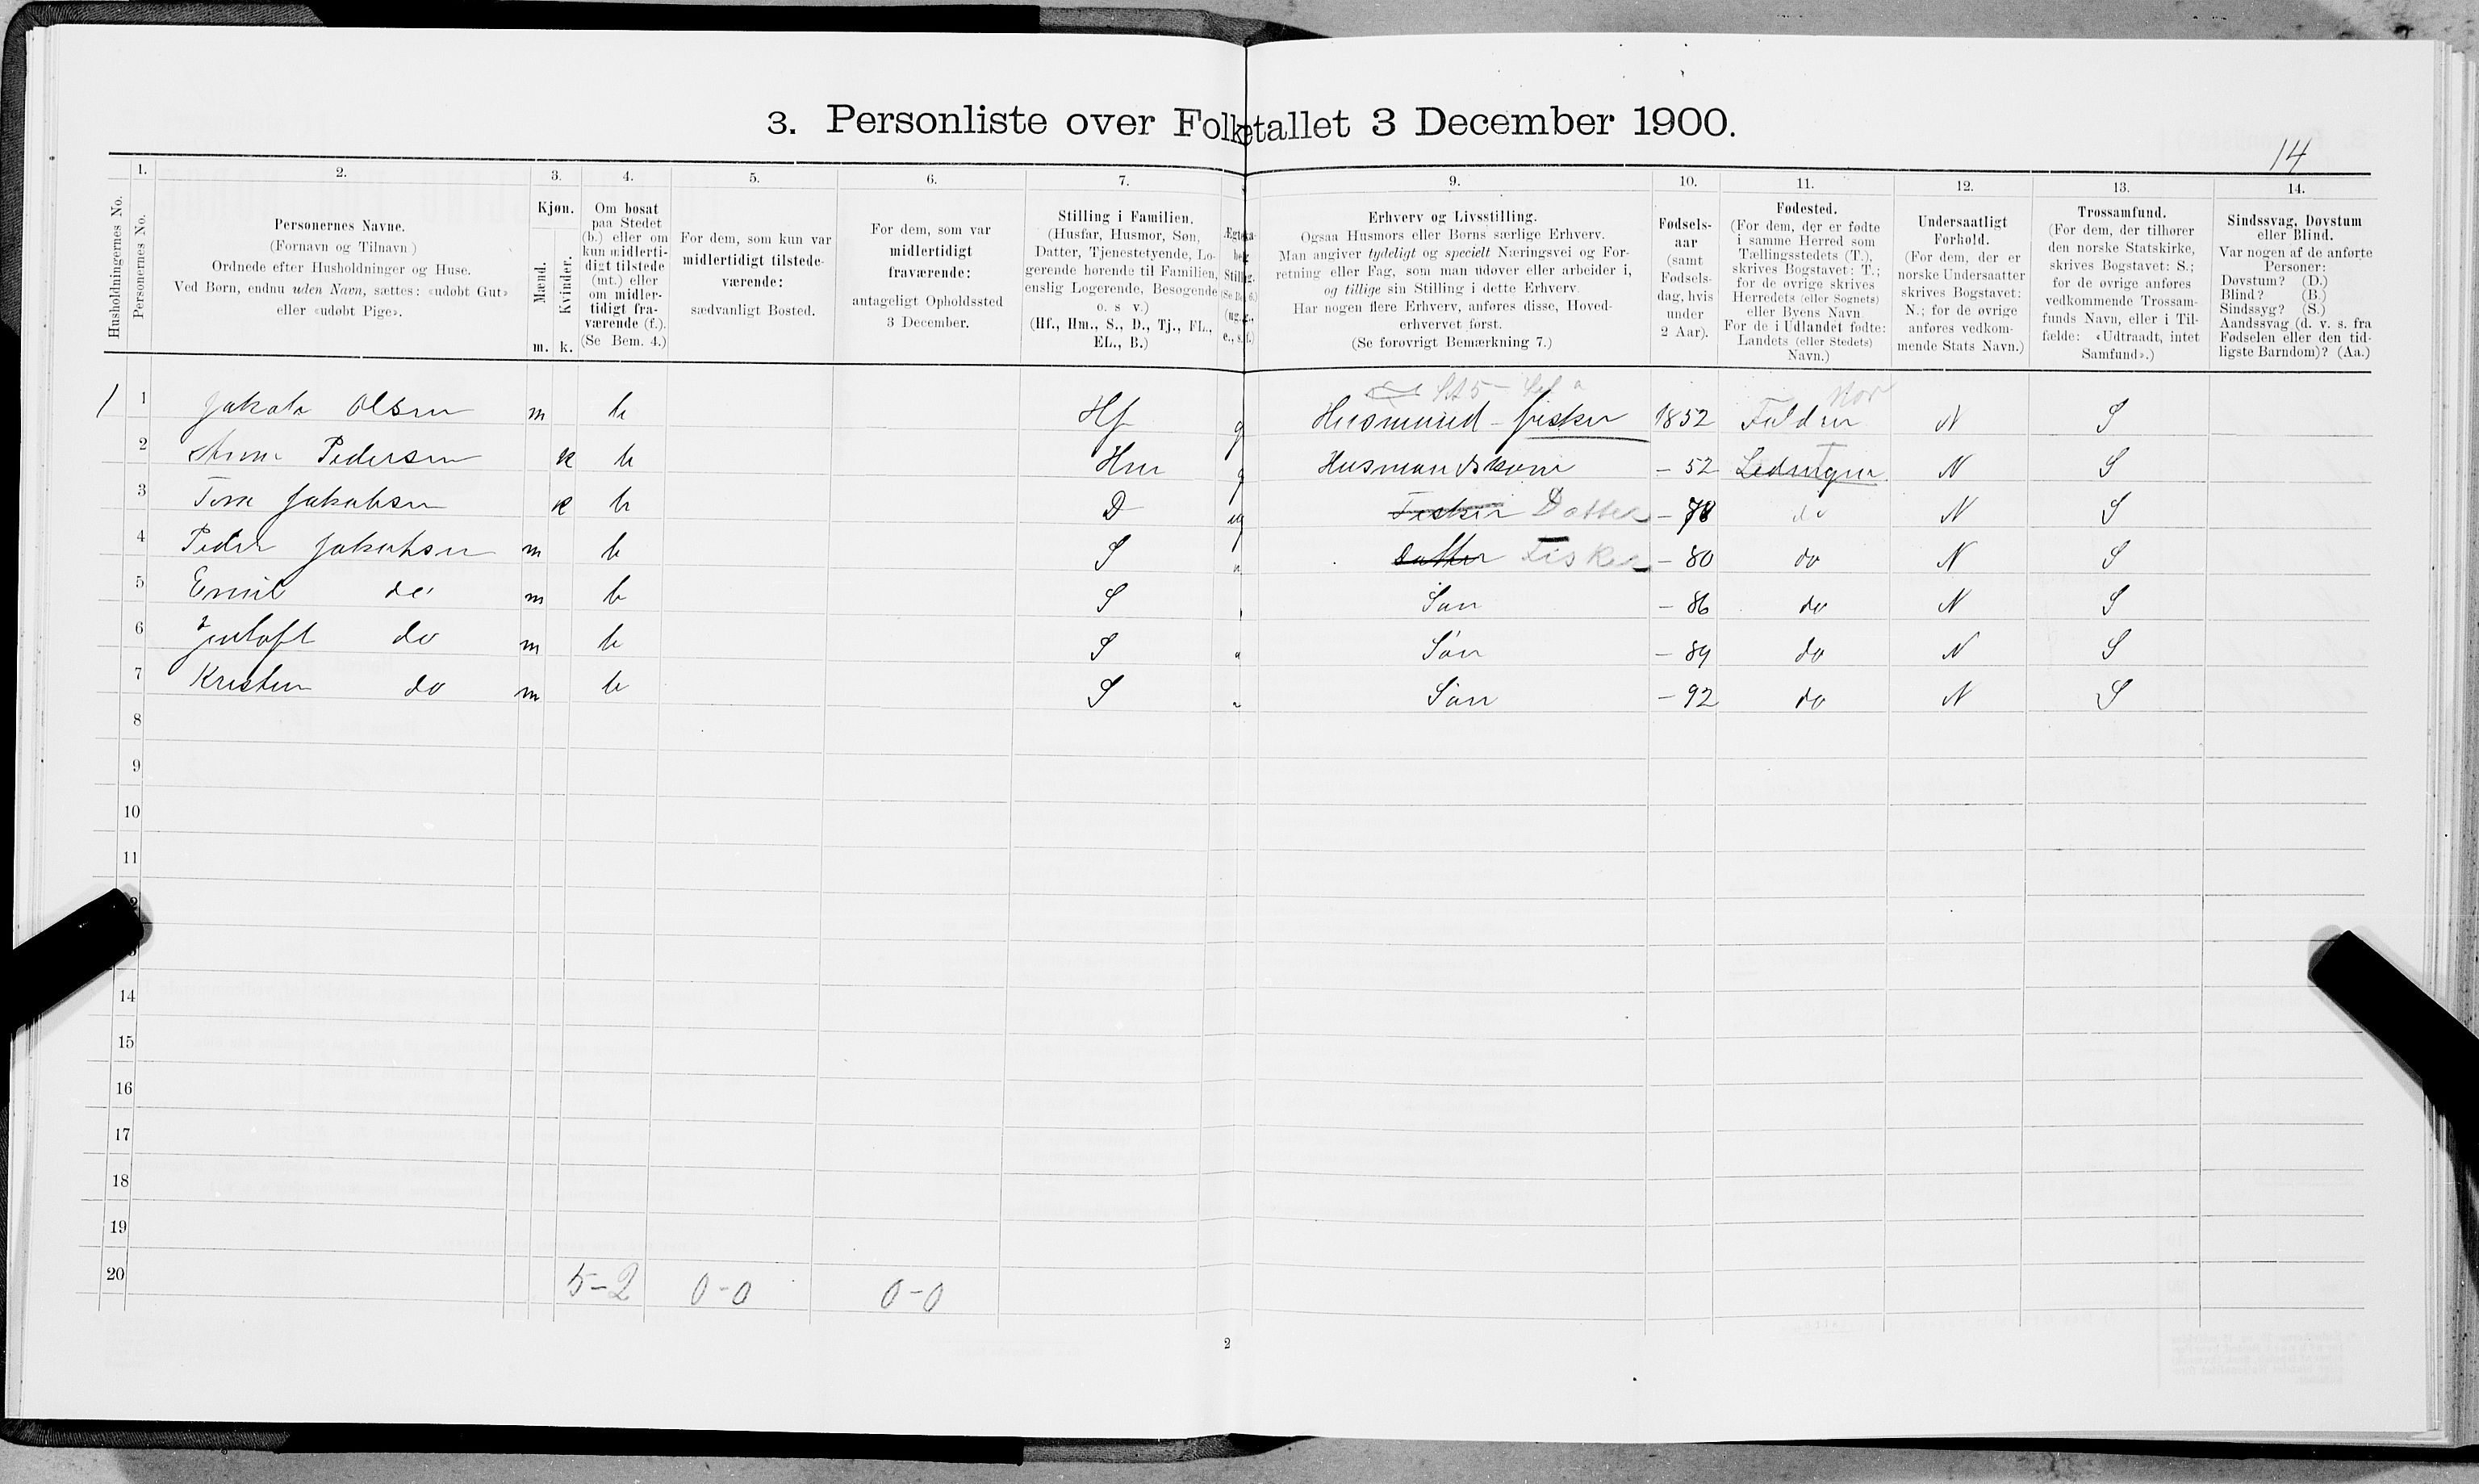 3. Personliste over Folketallet 3 December 1900.
14
Husholdningernes No.
1.
Personernes No.
2.
Personernes Navne.
(Fornavn og Tilnavn)
Ordnede efter Husholdninger og Huse.
Ved Børn, endnu uden Navn, sættes: «udøbt Gut»
eller «udøbt Pige».
3.
Kjøn.
Mænd.
Kvinder.
m. k.
4.
Om bosat
paa Stedet
(b.) eller om
kun midlerti-
digt tilstede
(mt.) eller
om midler-
tidigt fra-
værende (f.).
(Se Bem. 4.)
5.
For dem, som kun var
midlertidigt tilstede-
værende:
sædvanligt Bosted.
6.
For dem, som var
midlertidigt
fraværende:
antageligt Opholdssted
3 December.
7.
Stilling i Familien.
(Husfar, Husmor, Søn,
Datter, Tjenestetyende, Lo-
gerende hørende til Familien,
enslig Logerende, Besøgende
o. s v.)
(Hf., Hm., S., D., Tj., FL.,
EL., B.)
9.
Erhverv og Livsstilling.
Ogsaa Husmors eller Børns særlige Erhverv.
Man angiver tydeligt og specielt Næringsvei og For-
retning eller Fag, som man udøver eller arbeider i,
og tillige sin Stilling i dette Erhverv.
Har nogen flere Erhverv, anføres disse, Hoved-
erhvervet først.
(Se forøvrigt Bemærkning 7.)
10.
Fødsels-
aar
(samt
Fødsels-
dag, hvis
under
2 Aar).
11.
Fødested.
(For dem, der er fødte
i samme Herred som
Tællingsstedets (T.),
skrives Bogstavet: T.;
for de øvrige skrives
Herredets (eller Sognets)
eller Byens Navn.
For de i Udlandet fødte:
Landets (eller Stedets)
Navn.)
12.
Undersaatligt
Forhold.
(For dem, der er
norske Undersaatter
skrives Bogstavet:
N.; for de øvrige
anføres vedkom-
mende Stats Navn.)
13.
Trossamfund.
(For dem, der tilhører
den norske Statskirke,
skrives Bogstavet: S.;
for de øvrige anføres
vedkommende Trossam-
funds Navn, eller i Til-
fælde: «Udtraadt, intet
Samfund».)
14.
Sindssvag, Døvstum
eller Blind.
Var nogen af de anførte
Personer:
Døvstum? (D.)
Blind? (B.)
Sindssyg? (S.)
Aandssvag (d. v. s. fra
Fødselen eller den tid-
ligste Barndom)? (Aa.)
1 1 Jakob Olsen m b Hf g Husmand - fisker 1852 Folden N S
2 Pedersen k b Hm g Husmandskone - 52 Lødingen N S
3 Jakobsen k b D ug Fisker Datter - 78 do N S
4 Peder Jakobsen m b S Datter Fisker - 80 do N S
5 Emil do m b S Søn - 86 do N S
6 do m b S Søn - 89 do N S
7 Kristen do m b S Søn - 92 do N S
8
9
10
11
14
15
16
17
18
19
20 5-2 0-0 0-0
2